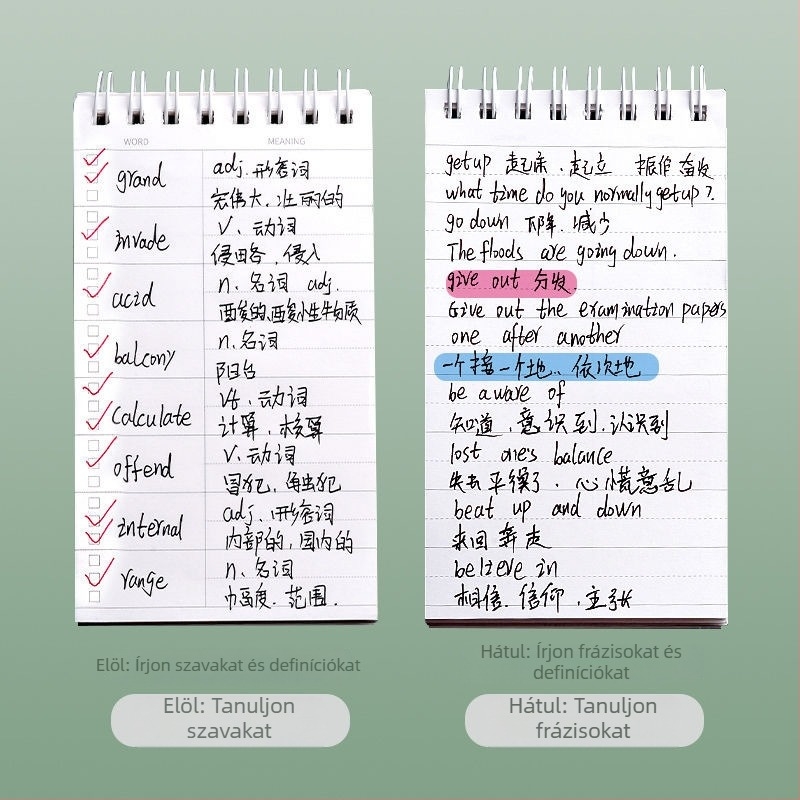 WORD MEANING
grand adj. 形容词
宏伟大、壮丽的
invade v. 动词
侵略、侵入
acid n. 名词 adj.
酸的、酸性物质
balcony n. 名词
阳台
calculate vt. 动词
计算、核算
offend v. 动词
冒犯、触犯
internal adj. 形容词
内部的、国内的
range n. 名词
幅度、范围.
get up 起床、起立 振作奋发
what time do you normally get up?
go down 下降、减少
The floods are going down.
give out 分发.
Give out the examination papers
one after another
一个接一个地、依次地
be aware of
知道、意识到、认识到
lost one's balance
失去平衡了、心慌意乱
beat up and down
来回奔走
believe in
相信、信仰、主张
Elöl: Írjon szavakat és definíciókat
Elöl: Tanuljon
szavakat
Hátul: Írjon frázisokat és
definíciókat
Hátul: Tanuljon
frázisokat